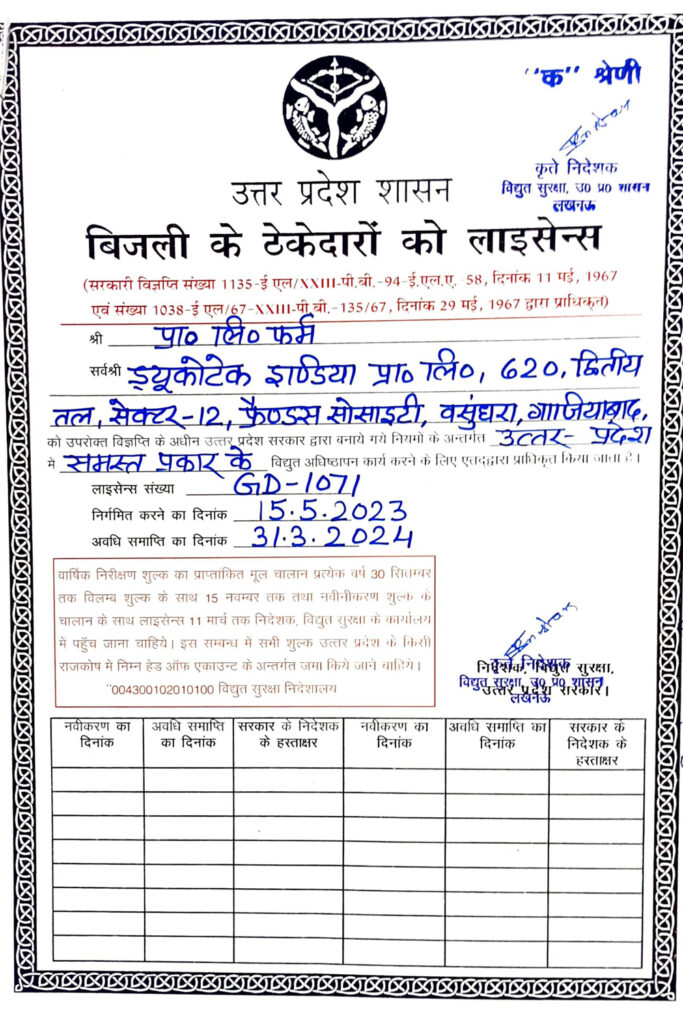 "क" श्रेणी
कृते निदेशक
विद्युत सुरक्षा, उ० प्र० शासन
लखनऊ
उत्तर प्रदेश शासन
बिजली के टेकेदारों को लाइसेन्स
(सरकारी विज्ञप्ति संख्या 1135-ई एल/XXIII-पी.बी.-94-ई.एल.ए. 58, दिनांक 11 मई, 1967
एवं संख्या 1038-ई एल/67-XXIII-पी.बी.-135/67, दिनांक 29 मई, 1967 द्वारा प्राधिकृत)
श्री प्रा० लि० फर्म
सर्वश्री ड्यूकोटेक इण्डिया प्रा० लि०, 620, द्वितीय
तल, सेक्टर-12, फ्रैण्डस सोसाइटी, वसुंधरा, गाजियाबाद,
को उपरोक्त विज्ञप्ति के अधीन उत्तर प्रदेश सरकार द्वारा बनाये गये नियमों के अन्तर्गत उत्तर-प्रदेश
में समस्त प्रकार के विद्युत अधिष्ठापन कार्य करने के लिए एतद्द्वारा प्राधिकृत किया जाता है।
लाइसेन्स संख्या GD-1071
निर्गमित करने का दिनांक 15.5.2023
अवधि समाप्ति का दिनांक 31.3.2024
वार्षिक निरीक्षण शुल्क का प्राप्तांकित मूल चालान प्रत्येक वर्ष 30 सितम्बर
तक विलम्ब शुल्क के साथ 15 नवम्बर तक तथा नवीनीकरण शुल्क के
चालान के साथ लाइसेन्स 11 मार्च तक निदेशक, विद्युत सुरक्षा के कार्यालय
में पहुँच जाना चाहिये। इस सम्बन्ध में सभी शुल्क उत्तर प्रदेश के किसी
राजकोष में निम्न हेड ऑफ एकाउन्ट के अन्तर्गत जमा किये जाने चाहिये।
"004300102010100 विद्युत सुरक्षा निदेशालय
कृते निदेशक
निदेशक, विद्युत सुरक्षा,
विद्युत सुरक्षा, उ० प्र० शासन
उत्तर प्रदेश सरकार।
लखनऊ
नवीकरण का दिनांक अवधि समाप्ति का दिनांक सरकार के निदेशक के हस्ताक्षर नवीकरण का दिनांक अवधि समाप्ति का दिनांक सरकार के निदेशक के हस्ताक्षर